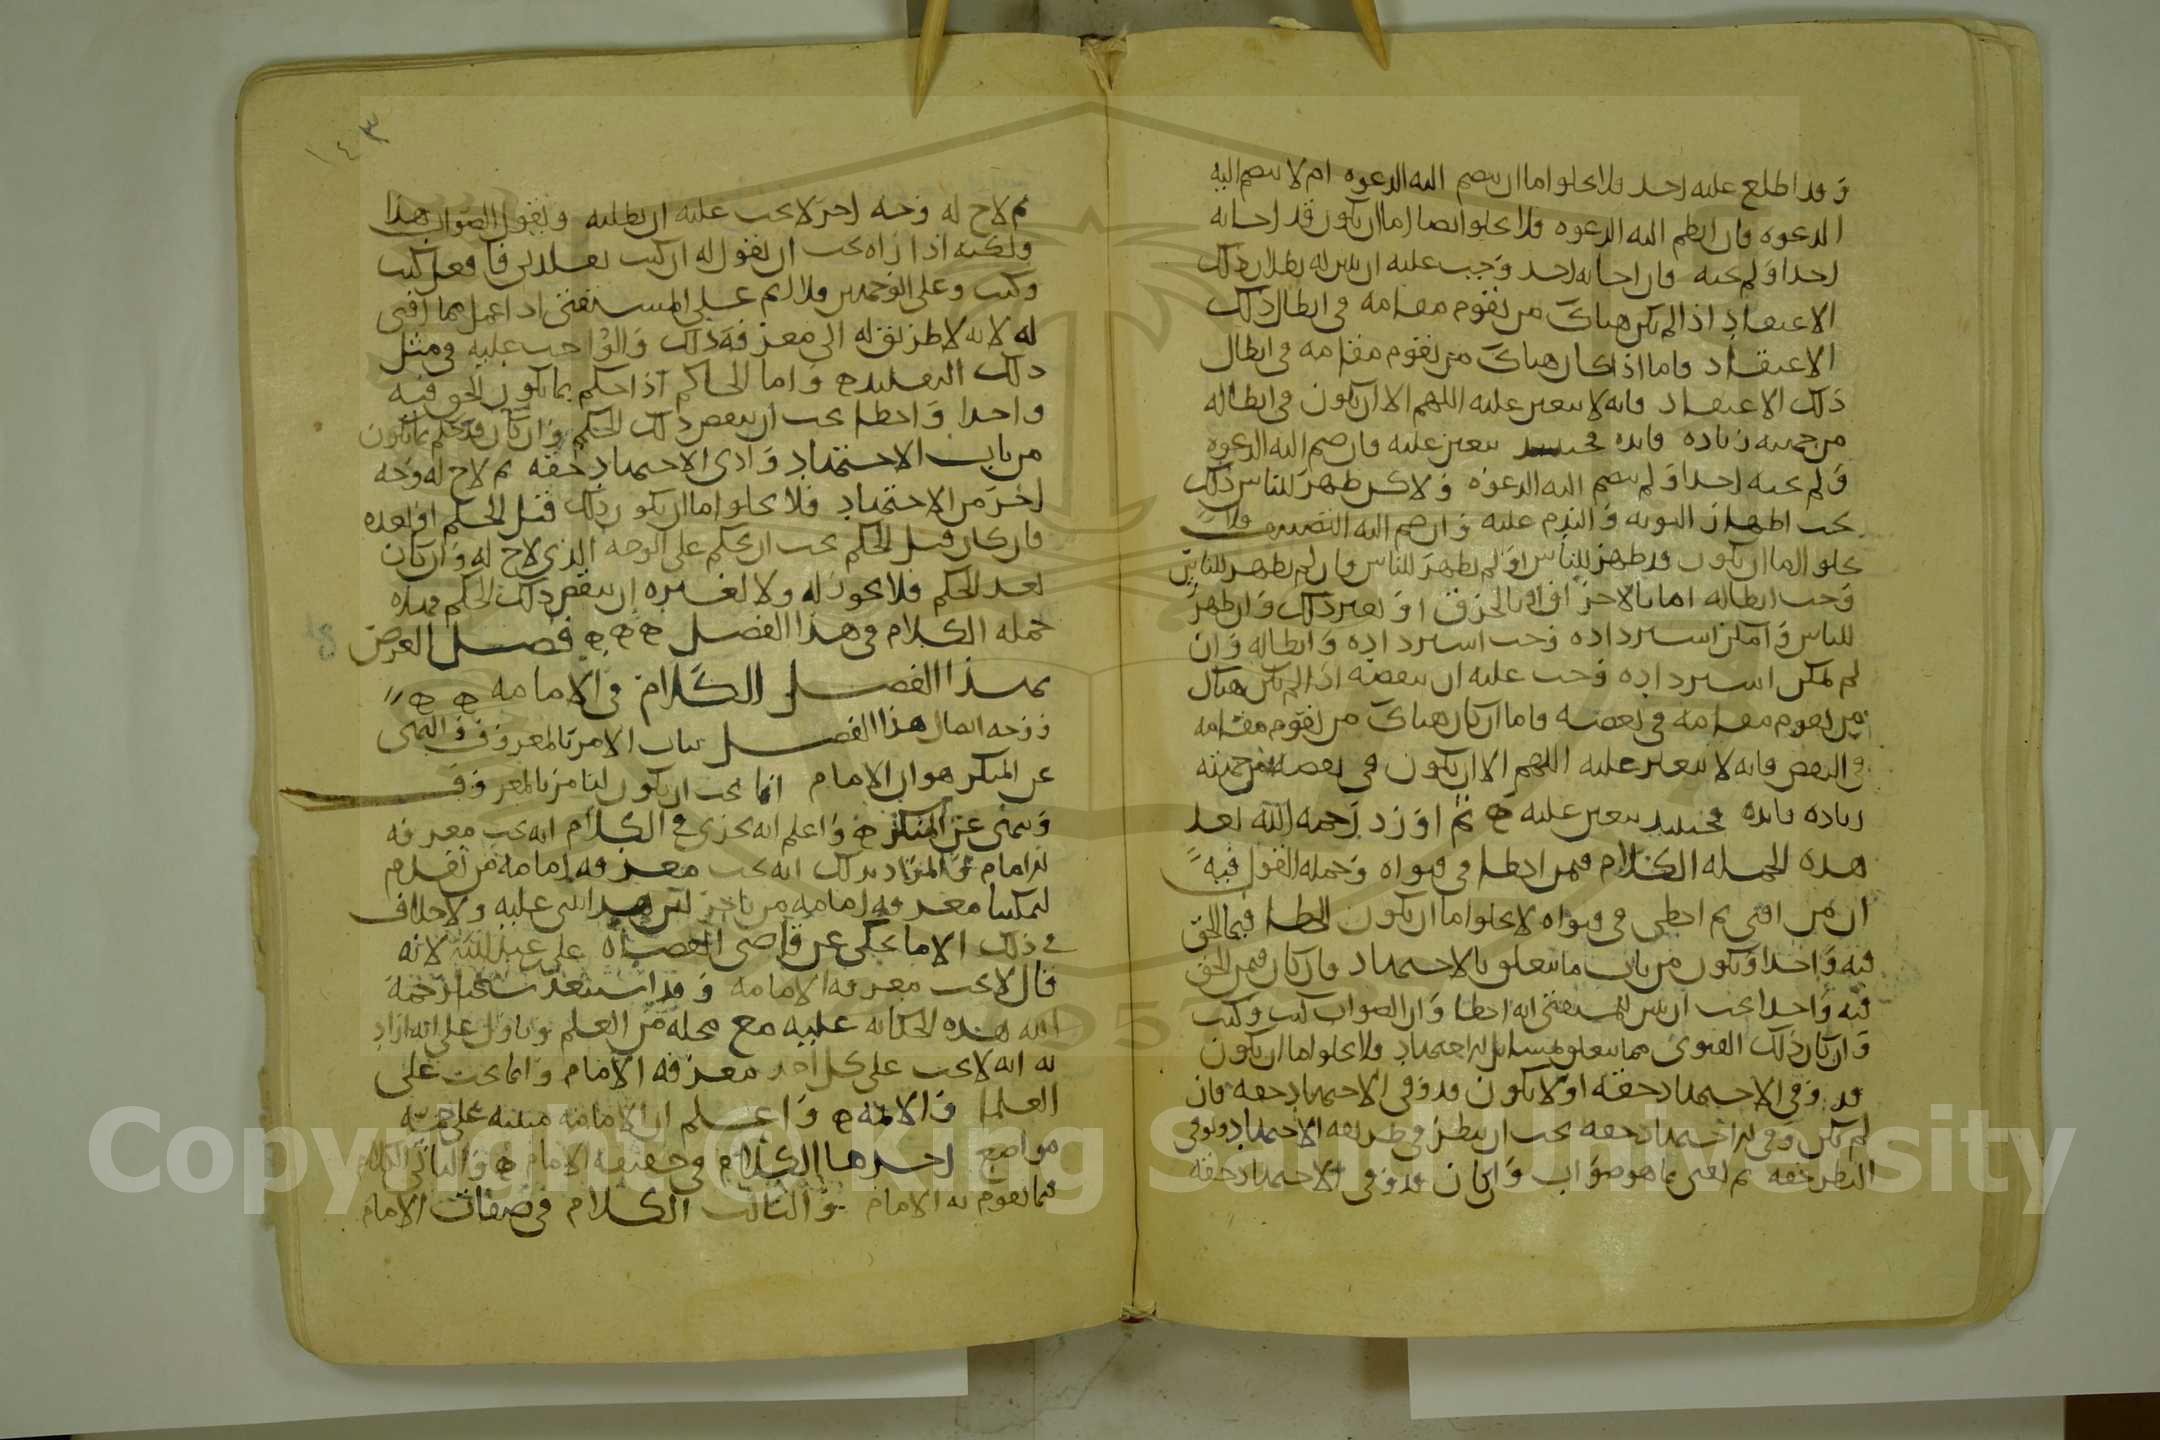 وقد اطلع عليه احد فلا يخلو اما ان ينضم اليه الدعوه ام لا ينضم اليه
الدعوه فان انظم اليه الدعوه فلا يخلو ايضا اما ان يكون قد اجابه
احد او لم يجبه فان اجابه احد وجب عليه ان يبين له بطلان ذلك
الاعتقاد اذا لم يكن هناك من يقوم مقامه في ابطال ذلك
الاعتقاد واما اذا كان هناك من يقوم مقامه في ابطال
ذلك الاعتقاد فانه لا يتعين عليه اللهم الا ان يكون في ابطاله
من جهته زياده فايده فحينيد يتعين عليه فان ضم اليه الدعوه
ولم يجبه احد او لم يضم اليه الدعوه ولاكن ظهر للناس ذلك
يجب اظهار التوبه والندم عليه وان ضم اليه التصنيف فلا
يخلو اما ان يكون قد ظهر للناس او لم يظهر للناس فان لم يظهر للناس
وجب ابطاله اما بالاحراق او بالخرق او بغير ذلك وان ظهر
للناس وامكن استرداده وجب استرداده وابطاله وان
لم يمكن استرداده وجب عليه ان ينقضه اذا لم يكن هناك
من يقوم مقامه في نقضه فاما ان كان هناك من يقوم مقامه
في النقض فانه لا يتعين عليه اللهم الا ان يكون في نقضه من جهته
زياده فايده فحينيد يتعين عليه ثم اورد رحمه الله بعد
هذه الجمله الكلام فيمن اخطا في فتواه وجمله القول فيه
ان من افتى ثم اخطى في فتواه لا يخلو اما ان يكون الخطا فيما الحق
فيه واحد او يكون من باب ما يتعلق بالاجتهاد فان كان فيمن الحق
فيه واحد يجب ان يبين للمستفتي انه اخطا وان الصواب كيت وكيت
وان كان ذلك الفتوى مما يتعلق بمسايل الاجتهاد فلا يخلو اما ان يكون
قد وفى الاجتهاد حقه او لا يكون قد وفى الاجتهاد حقه فان
لم يكن وفى الاجتهاد حقه يجب ان ينظر في طريقه الاجتهاد ويوفي
النظر حقه ثم يفتي بما هو صواب وان كان قد وفى الاجتهاد حقه
١٤٣
ثم لاح له وجه اخر لا يجب عليه ان يطلبه ويقول الصواب هذا
ولكنه اذا راه يجب ان يقول له ان كنت تقلدني فافعل كيت
وكيت وعلى الوجهين فلا اثم على المستفتي اذا عمل بما افتى
له لانه لا طريق له الى معرفه ذلك والواجب عليه في مثل
ذلك التقليد واما الحاكم اذا حكم بما يكون الحق فيه
واحدا واخطا يجب ان ينقض ذلك الحكم وان كان قد حكم بما يكون
من باب الاجتهاد وادى الاجتهاد حقه ثم لاح له وجه
اخر من الاجتهاد فلا يخلو اما ان يكون ذلك قبل الحكم او بعده
فان كان قبل الحكم يجب ان يحكم على الوجه الذي لاح له وان كان
بعد الحكم فلا يجوز له ولا لغيره ان ينقض ذلك الحكم فهذه
جمله الكلام في هذا الفصل فصل الغرض
بهذا الفصل الكلام في الامامه
ووجه اتصال هذا الفصل بباب الامر بالمعروف والنهي
عن المنكر هو ان الامام انما يجب ان يكون ليامر بالمعروف
وينهى عن المنكر واعلم انه يجري في الكلام انه يجب معرفه
الامام والمراد بذلك انه يجب معرفه امامه من تقدم
ليمكننا معرفه امامه من تاخر عليه ولا خلاف
في ذلك الا ما يحكى عن قاضي القضاه علي عبد الله لانه
قال لا يجب معرفه الامامه وقد استبعد شيخنا رحمه
الله هذه الحكايه عليه مع محله من العلم وتاول على انه اراد
به انه لا يجب على كل احد معرفه الامام وانما يجب على
العلما والائمه واعلم ان الامامه مبنيه على خمسه
مواضع احدها الكلام في حقيقه الامام والثاني الكلام
فيما يقوم به الامام والثالث الكلام في صفات الامام
Copyright © King Saud University
1957